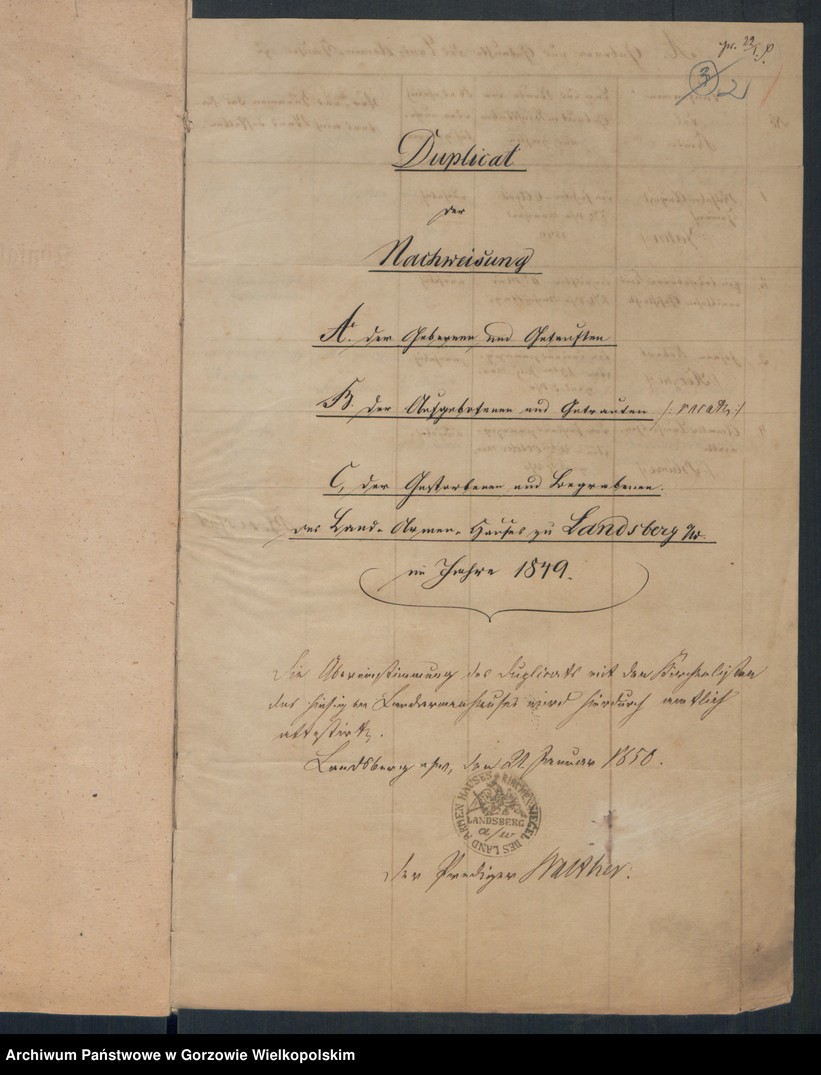 pr. 22/1. 50
3 2
Duplicat
der
Nachweisung
A. der Geborenen und Getauften
B. der Aufgebotenen und Getrauten /: vacat :/
C, der Gestorbenen und Begrabenen.
des Land-Armen-Hauses zu Landsberg a/w.
im Jahre 1849.
Die Übereinstimmung des Duplicats mit den Kirchenlisten
des hiesigen Landarmenhauses wird hierdurch amtlich
attestirt.
Landsberg a/w, den 21. Januar 1850.
KIRCHENSIEGEL DES LAND ARMEN HAUSES
LANDSBERG
a/w
Der Prediger Walther.
Archiwum Państwowe w Gorzowie Wielkopolskim